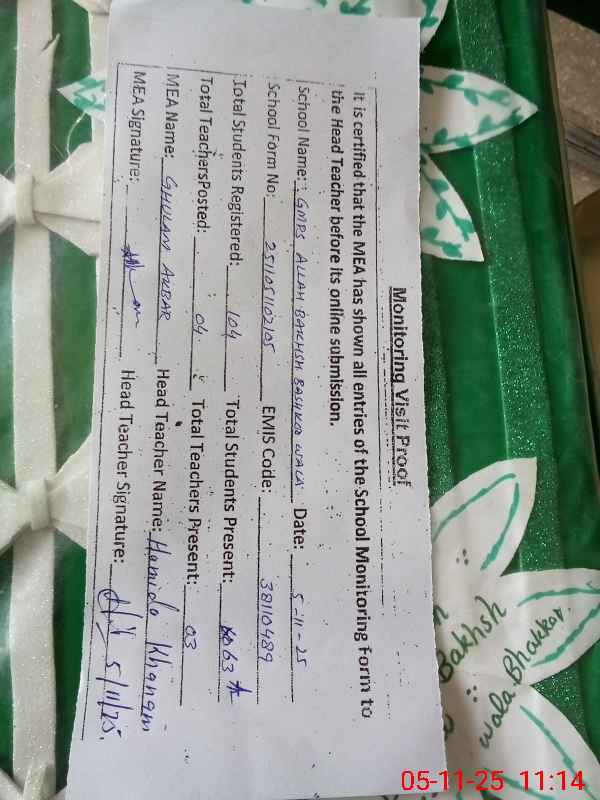 Monitoring Visit Proof
It is certified that the MEA has shown all entries of the School Monitoring Form to
the Head Teacher before its online submission.
School Name: GMPS ALLAH BAKHSH BASHKOO WALA Date: 5-11-25
School Form No: 2511051102105 EMIS Code: 38110489
Total Students Registered: 104 Total Students Present: 63
Total Teachers Posted: 04 Total Teachers Present: 03
MEA Name: GHULAM AKBAR Head Teacher Name: Hamida Khanam
MEA Signature: Head Teacher Signature: 5/11/25.
Bakhsh
wala Bhakkar.
05-11-25 11:14